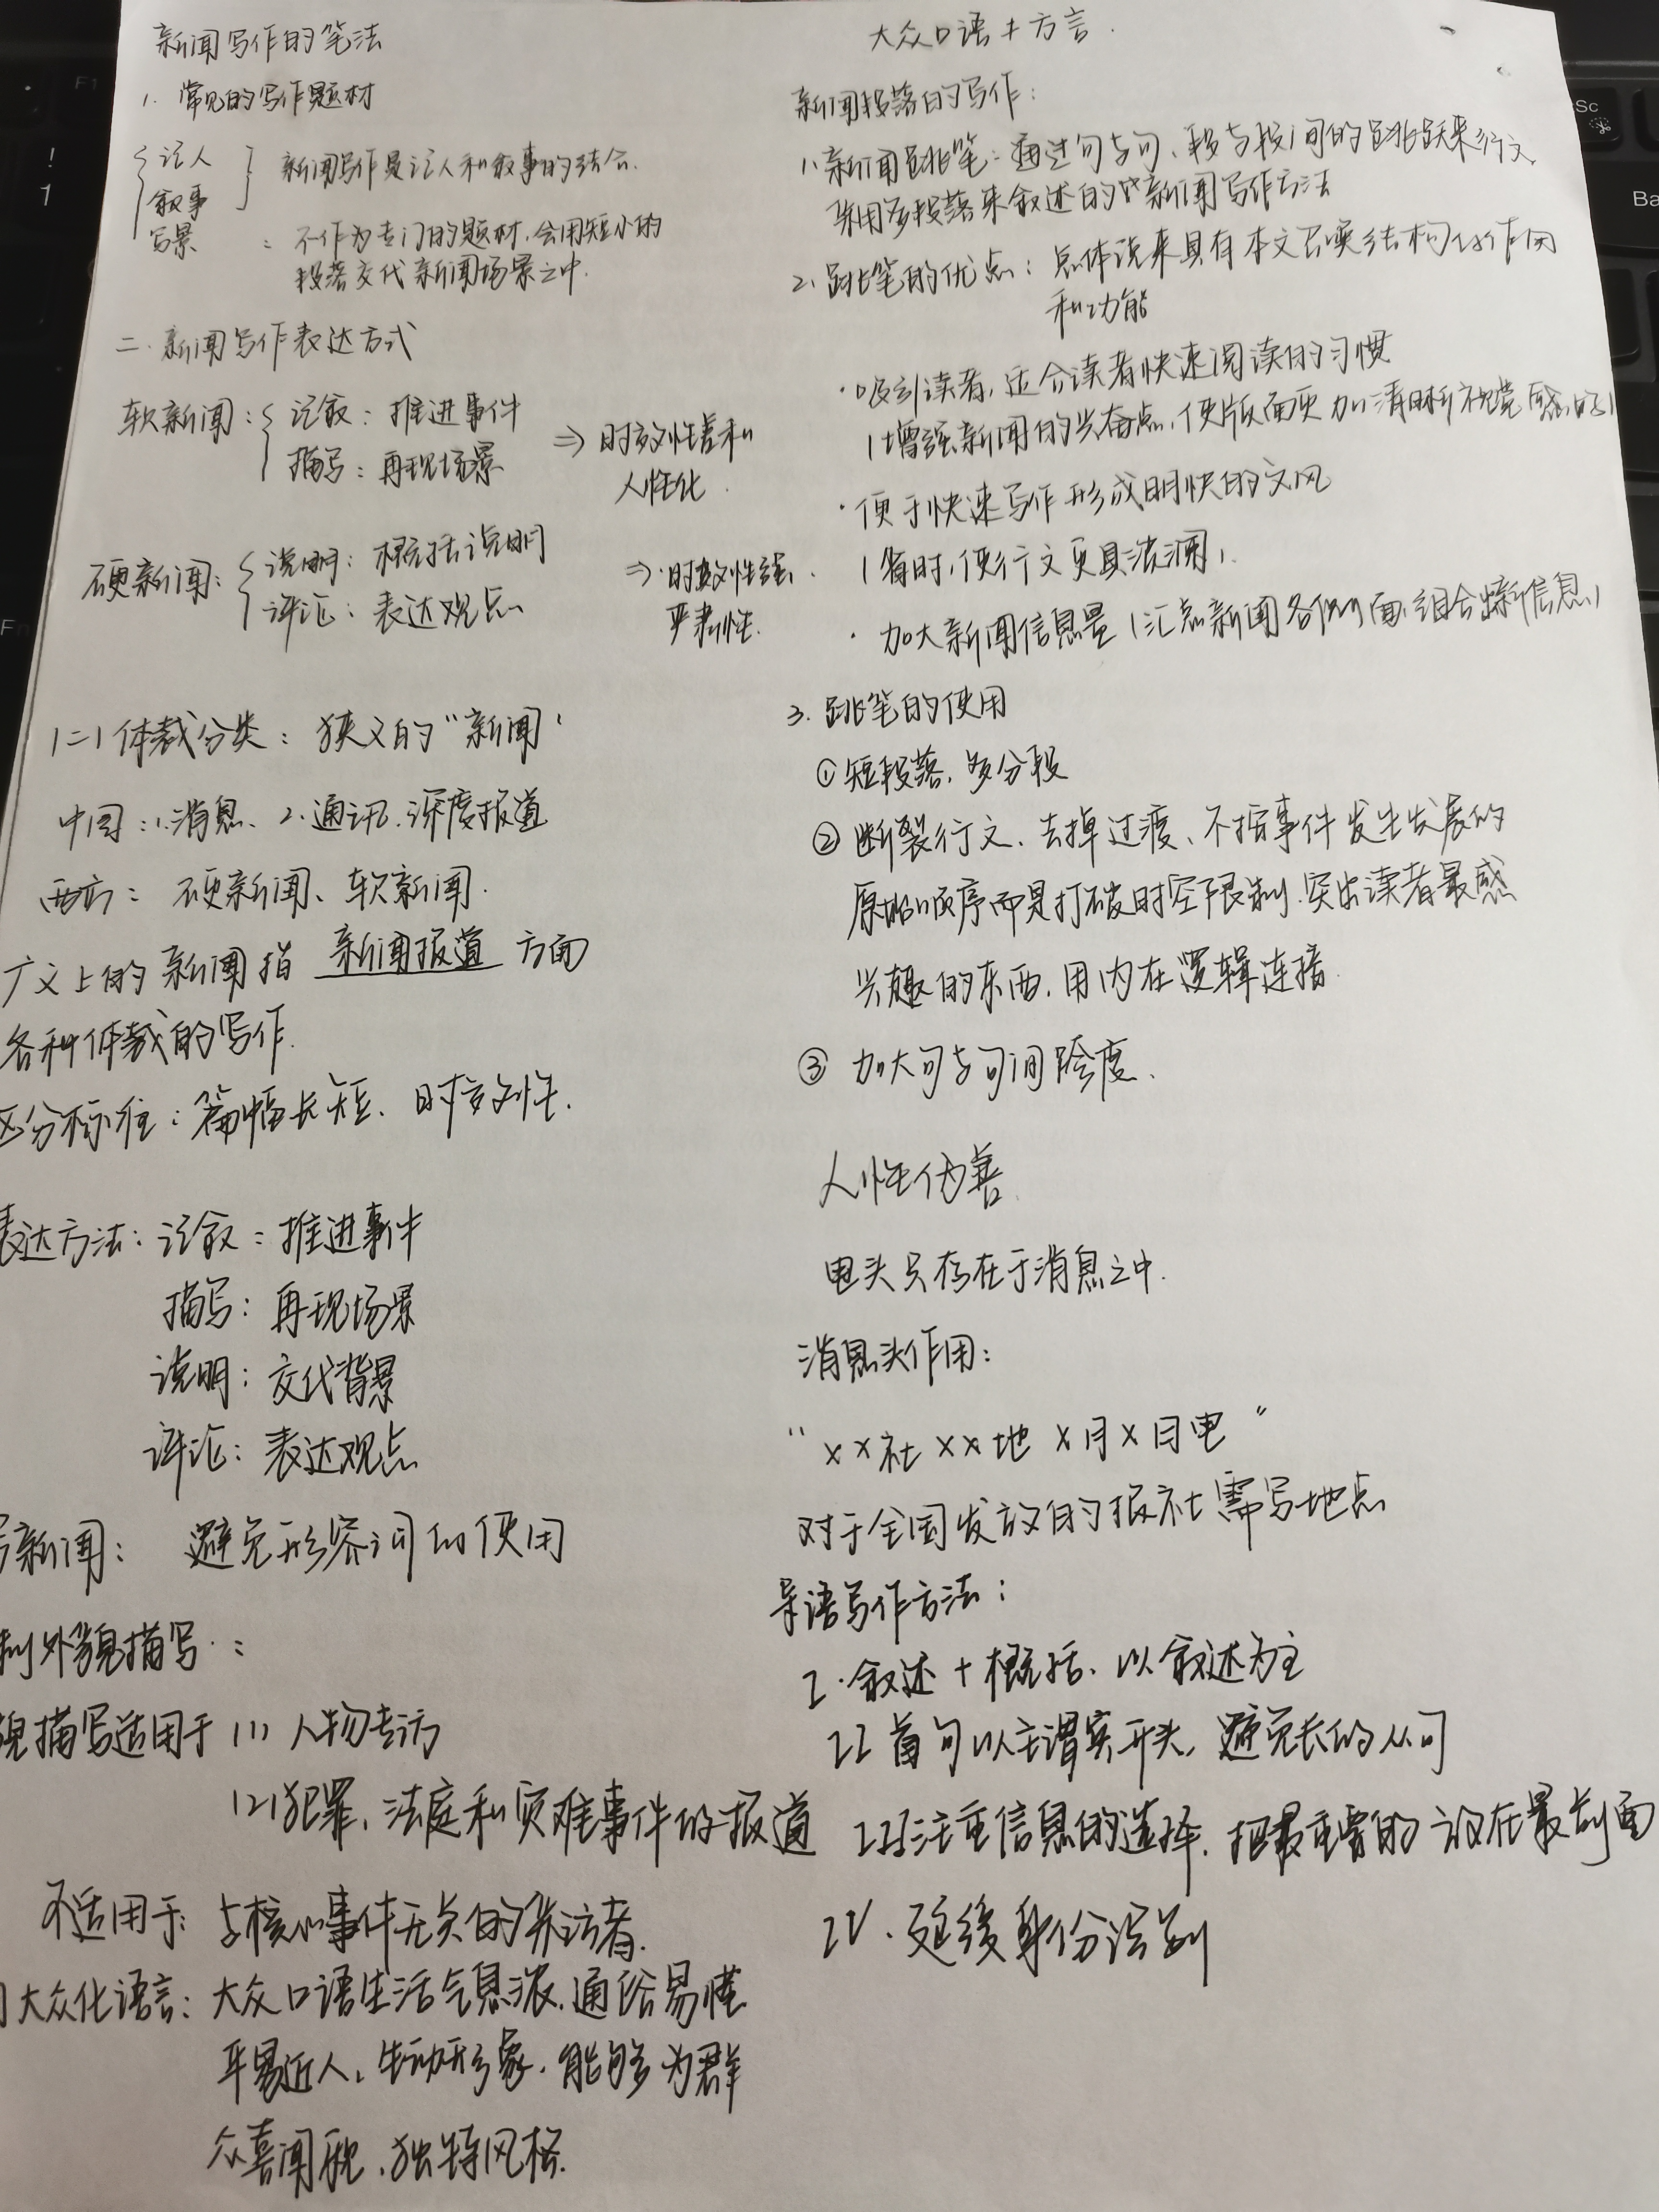 新闻写作的笔法
1. 常见的写作题材
记人
叙事
新闻写作是记人和叙事的结合.
写景 : 不作为专门的题材,会用短小的
段落交代新闻场景之中.
二. 新闻写作表达方式
软新闻: 记叙: 推进事件
描写: 再现场景
⇒ 时效性差和
人性化.
硬新闻: 说明: 概括说明
评论: 表达观点
⇒ 时效性强.
严肃性.
(二)体裁分类: 狭义的"新闻"
中国: 1.消息、2.通讯.深度报道
西方: 硬新闻、软新闻.
广义上的新闻指 新闻报道 方面
各种体裁的写作.
区分标准: 篇幅长短、时效性.
表达方法: 记叙: 推进事件
描写: 再现场景
说明: 交代背景
评论: 表达观点
写新闻: 避免形容词的使用
制外貌描写:
貌描写适用于 (1) 人物专访
(2)犯罪、法庭和灾难事件的报道
不适用于: 与核心事件无关的采访者.
大众化语言: 大众口语生活气息浓.通俗易懂
平易近人、生动形象.能够为群
众喜闻.独特风格.
大众口语≠方言.
新闻段落的写作:
1.新闻跳笔: 通过句与句、段与段间的跳跃来行文
采用多段落来叙述的新闻写作方法
2. 跳笔的优点: 总体说来具有本文召唤结构的作用
和功能
·吸引读者,适合读者快速阅读的习惯
(增强新闻的兴奋点,使版面更加清晰视觉感好)
·便于快速写作形成明快的文风
(省时,使行文更具波澜)
·加大新闻信息量(汇点新闻各侧面组合新信息)
3. 跳笔的使用
① 短段落,多分段
② 断裂行文、去掉过渡、不按事件发生发展的
原始顺序而是打破时空限制.突出读者最感
兴趣的东西.用内在逻辑连接
③ 加大句与句间跨度.
人性伪善
电头只存在于消息之中.
消息头作用:
"××社××地×月×日电"
对于全国发放的报社需写地点
导语写作方法:
I. 叙述+概括、以叙述为主
II 首句以主谓宾开头,避免长的从句
III注重信息的选择.把最重要的放在最前面
IV. 延缓身份识别